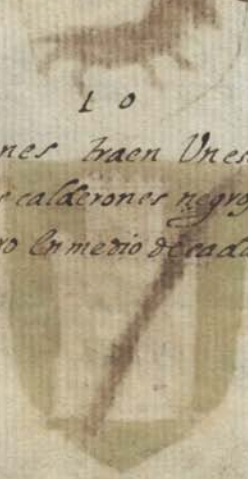 10
nes traen Un es
s calderones negros
ro En medio de cada